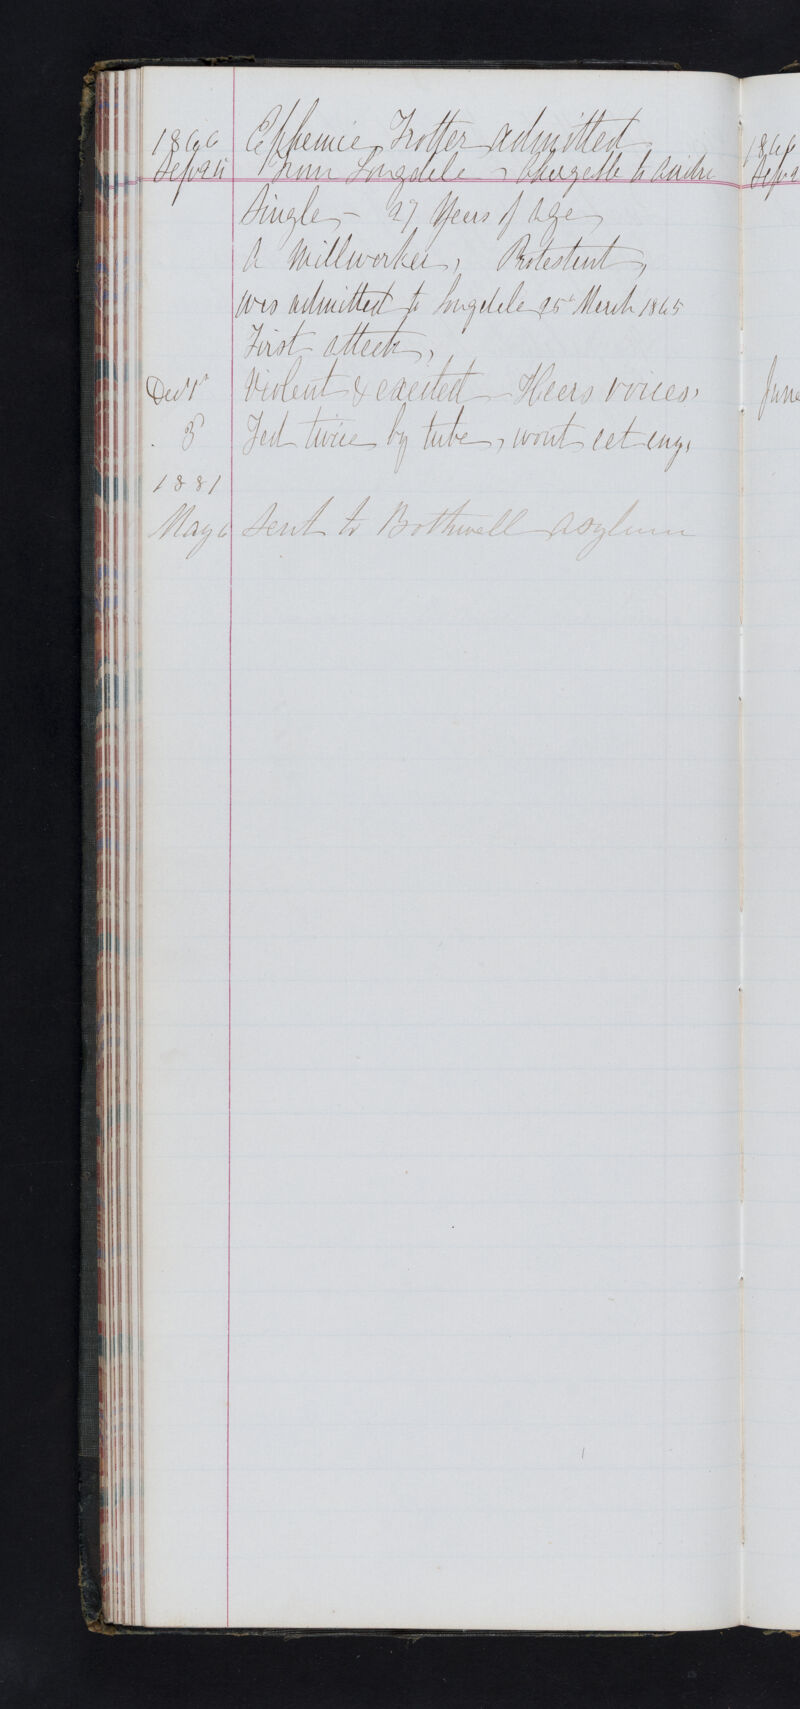 1866 Epphemia Trotter admitted
Sep 25 from Longdale - Chargeable to Airdrie
Single - 27 Years of age
A Millworker, Protestant,
was admitted to Longdale 25th March 1865
First attack,
Decr 1st Violent & excited - Hears voices,
" 3 Fed twice by tube, wont eat any,
1881
May 6 Sent to Bothwell Asylum
1866
Sep 2
June